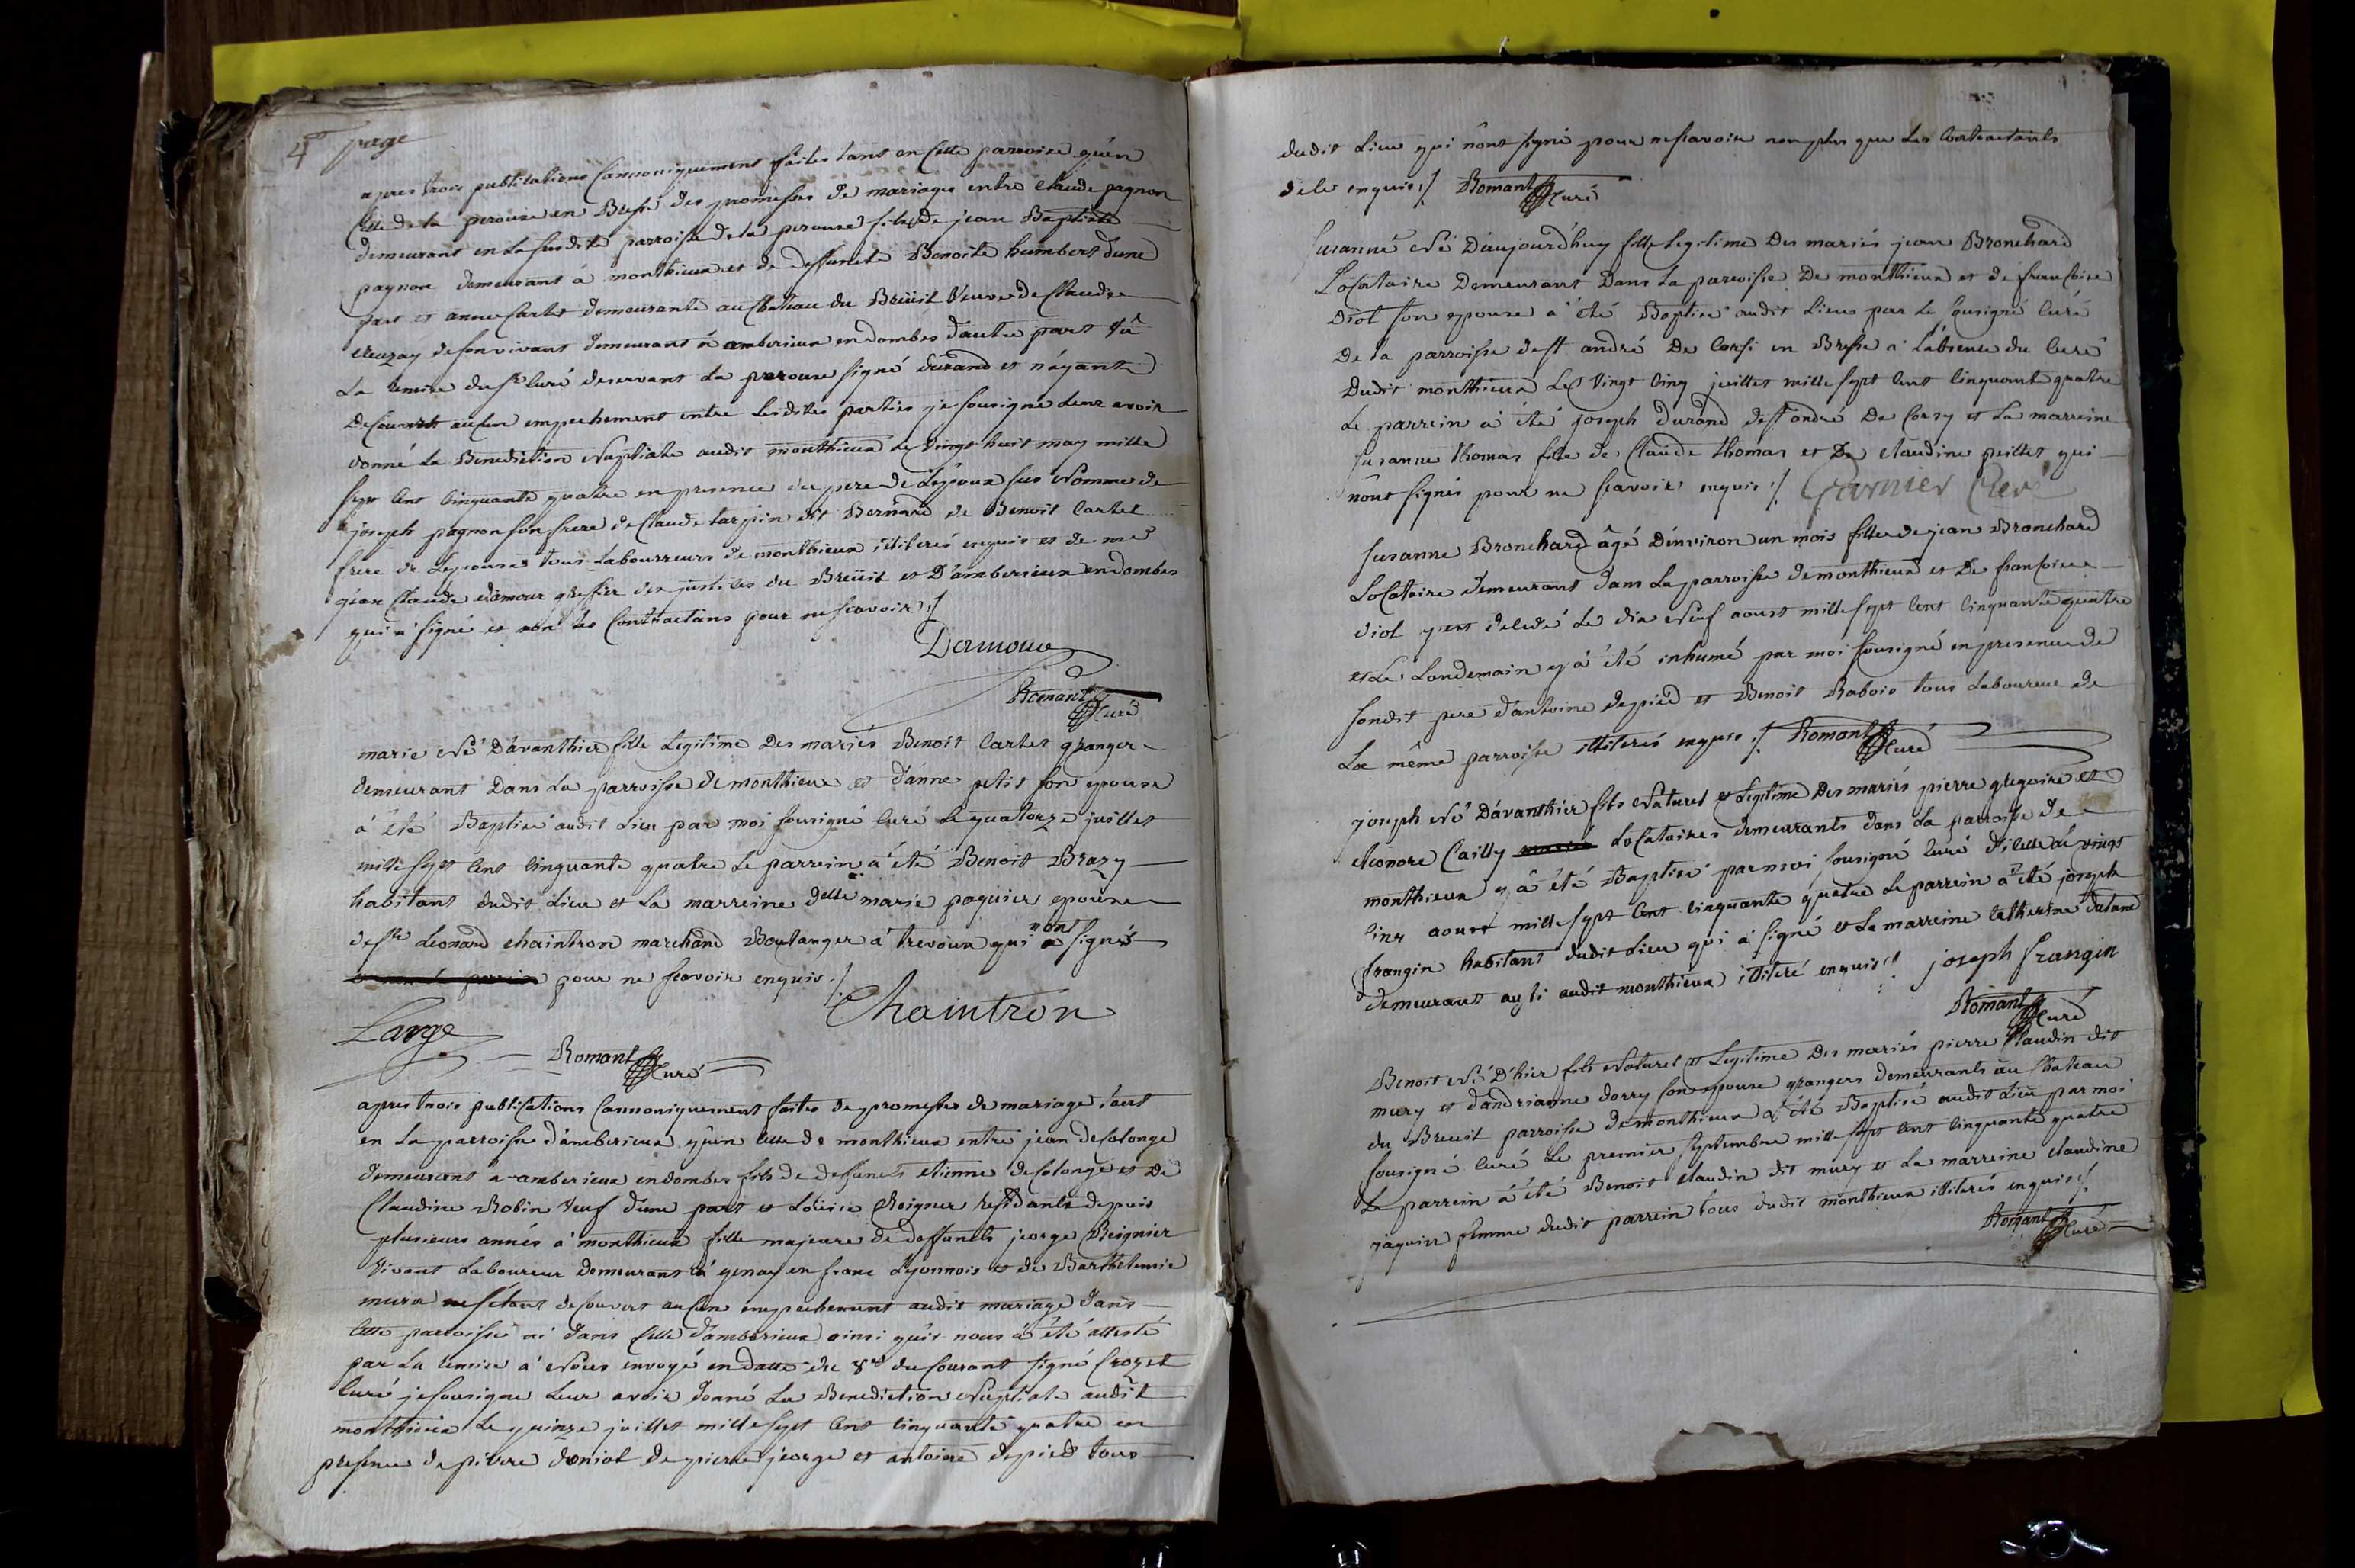 4e page
apres trois publications cannoniquement faites tant en cette parroise qu'en
celle de la perouse en Bresse des promesses de mariage entre claude pagnon
demeurant en la susdite parroisse de la perouse fils de jean Baptiste
pagnon demeurant à monthieux et de deffuncte Benoite humbert d'une
part et anne Cartet demeurante au Chateau du Breüil veuve de Claude
creuzay de son vivant demeurant à amberieux en dombes d'autre part vû
la remise du sr Curé deservant la perouse signé durand et n'ayant
decouvert aucun empechement entre lesdites parties je sousigne leur avoir
donné la Benediction Nuptiale audit monthieux le vingt huit may mille
sept cent cinquante quatre en presence du pere de l'epoux sus Nommé de
joseph pagnon son frere de Claude tarpin dit Bernard de Benoit Cartet
frere de l'epouse tous Labourreurs de monthieux illiterés enquis et de me
jean Claude damour greffier des justices du Breüil et D'amberieux en dombes
qui a signé et non les Contractans pour ne scavoir ./.
Damour
Romant Curé
marie Né D'avanthier fille Legitime des mariés Benoit Cartet granger
demeurant Dans la parroisse de monthieux et d'anne petit son epouse
a été Baptisé audit Lieu par moi sousigné Curé le quatorze juillet
mille sept cent cinquante quatre le parrein a été Benoit Brazy
habitant dudit Lieu et la marreine delle marie paquier epouse
de sr Leonard chaintron marchand Boulanger à trevoux qui ont signés
pour ne scavoir enquis ./.
Chaintron
Large
Romant Curé
apres trois publications Cannoniquement faites de promesses de mariage tant
en la parroisse d'amberieux qu'en celle de monthieux entre jean decolonge
demeurant a amberieux en dombes fils de deffuncts etienne decolonge et de
Claudine Robin veuf d'une part et Loüise Reignier residante depuis
plusieurs années a monthieux fille majeure de deffuncts jeorge Reignier
vivant Laboureur demeurant à genay en franc Lyonnois et de Barthelemie
mure ne s'etant decouvert aucun empechement audit mariage dans
cette parroisse ni dans celle d'amberieux ainsi qu'il nous a été attesté
par la remise a Nous envoyé en datte du 8 du courant signé Crozet
Curé je sousigne leur avoir donné la Benediction Nuptiale audit
monthieux le quinze juillet mille sept cent cinquante quatre en
presence de pierre doniol de pierre jeorge et antoine depied tous
dudit Lieu qui n'ont signé pour ne scavoir non plus que les Contractants
de ce enquis ./. Romant Curé
Susanne Né D'aujourd'huy fille Legitime des mariés jean Bronchard
Locataire Demeurant Dans la parroisse De monthieux et de francoise
Diol son epouse a été Baptisé audit Lieu par le sousigné Curé
De la parroisse de st andré De Corsi en Bresse a l'absence du Curé
dudit monthieux le vingt cinq juillet mille sept cent cinquante quatre
le parrein a été joseph durand de st andré De Corzy et la marreine
Susanne thomas fille de Claude thomas et De claudine peillet qui
n'ont signés pour ne scavoir enquis ./. Garnier Curé
Susanne Bronchard agé d'environ un mois fille de jean Bronchard
Locataire demeurant dans la parroisse de monthieux et De francoise
diol y est decedé le dix Neuf aoust mille sept cent cinquante quatre
et le Londemain y a été inhumé par moi sousigné en presence de
sondit pere d'antoine depied et Benoit Rabois tous Laboureurs de
La même parroisse illiterés enquis ./. Romant Curé
joseph Né D'avanthier fils Naturel et Legitime Des mariés pierre gregoire et
eleonore Cailly Locataires demeurants dans la parroisse de
monthieux y a été Baptisé par moi sousigné Curé d'icelle le vingt
cinq aoust mille sept cent cinquante quatre le parrein a été joseph
frangin habitant dudit Lieu qui a signé et la marreine catherine
demeurant audit monthieux illiteré enquis ./. joseph frangin
Romant Curé
Benoit Né D'hier fils Naturel et Legitime des mariés pierre Claudin dit
mury et d'andrianne dorry son epouse grangers demeurants au Chateau
du Breuil parroisse de monthieux a été Baptisé audit Lieu par moi
sousigné Curé le premier septembre mille sept cent cinquante quatre
le parrein a été Benoit Claudin dit mury et la marreine claudine
jaquier femme dudit parrein tous dudit monthieux illiterés enquis ./.
Romant Curé